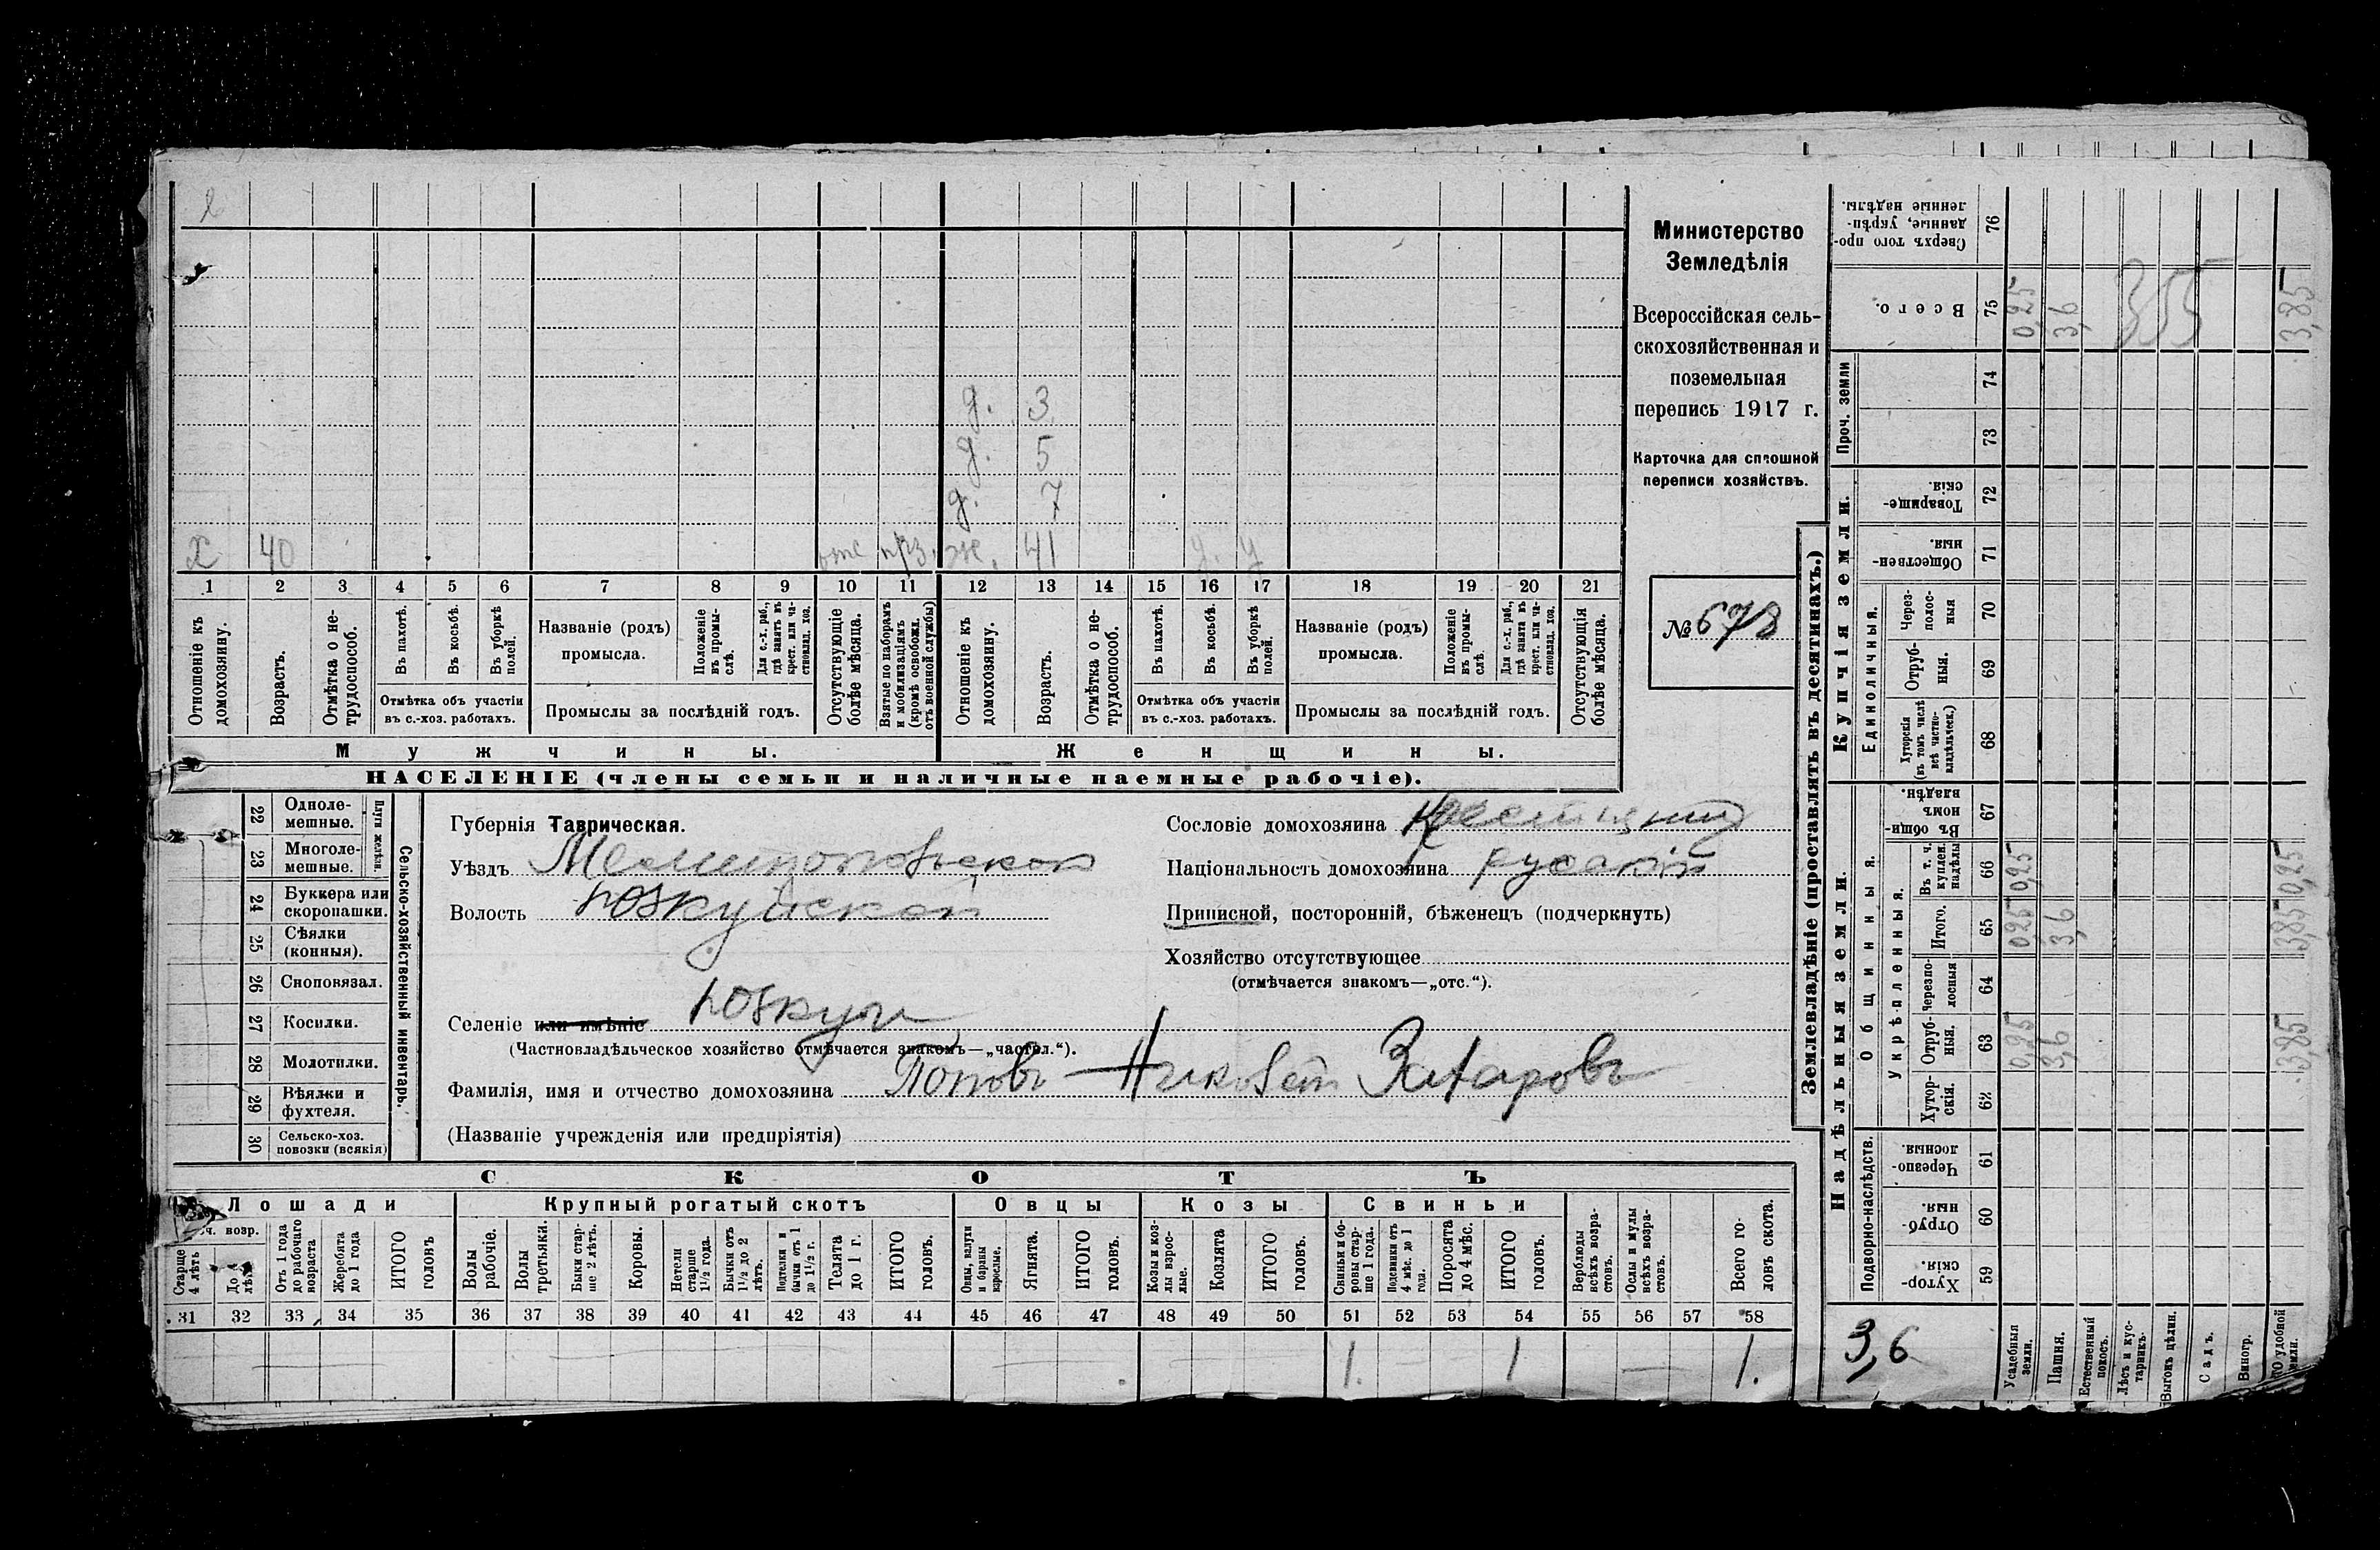 х 40 отс прз. ж. 41 у. у
д. 7
д. 5
д. 3
1 2 3 4 5 6 7 8 9 10 11 12 13 14 15 16 17 18 19 20 21
Отношеніе къ домохозяину.
Возрастъ.
Отмѣтка о не-трудоспособ.
Въ пахотѣ.
Въ косьбѣ.
Въ уборкѣ полей.
Отмѣтка объ участіи въ с.-хоз. работахъ.
Названіе (родъ) промысла.
Положеніе въ промы-слѣ.
Для с.-х. раб., гдѣ занятъ въ крест. или ча-стновлад. хоз.
Промыслы за послѣдній годъ.
Отсутствующіе болѣе мѣсяца.
Взятые по наборамъ и мобилизаціямъ (кромѣ освобожд. отъ военной службы)
Отношеніе къ домохозяину.
Возрастъ.
Отмѣтка о не-трудоспособ.
Въ пахотѣ.
Въ косьбѣ.
Въ уборкѣ полей.
Отмѣтка объ участіи въ с.-хоз. работахъ.
Названіе (родъ) промысла.
Положеніе въ промы-слѣ.
Для с.-х. раб., гдѣ занята въ крест. или ча-стновлад. хоз.
Промыслы за послѣдній годъ.
Отсутствующія болѣе мѣсяца.
Мужчины.
Женщины.
НАСЕЛЕНІЕ (члены семьи и наличные наемные рабочіе).
Министерство
Земледѣлія
Всероссійская сель-
скохозяйственная и
поземельная
перепись 1917 г.
Карточка для сплошной
переписи хозяйствъ.
№ 678
22 Одноле-мешные.
23 Многоле-мешные.
Плуги желѣзн.
24 Буккера или скоропашки.
25 Сѣялки (конныя).
26 Сноповязал.
27 Косилки.
28 Молотилки.
29 Вѣялки и фухтеля.
30 Сельско-хоз. повозки (всякія)
Сельско-хозяйственный инвентарь.
Губернія Таврическая.
Уѣздъ Мелитопольской
Волость Юзкуйской
Селеніе или имѣніе Юзкуи
(Частновладѣльческое хозяйство отмѣчается знакомъ—„частвл.“).
Фамилія, имя и отчество домохозяина Поповъ Захаровъ
(Названіе учрежденія или предпріятія)
Сословіе домохозяина Крестьянин
Національность домохозяина русскій
Приписной, посторонній, бѣженецъ (подчеркнуть)
Хозяйство отсутствующее
(отмѣчается знакомъ—„отс.“).
СКОТЪ
Лошади
Крупный рогатый скотъ
Овцы
Козы
Свиньи
Старше 4 лѣтъ
Отъ 1 года до рабочаго возраста
Жеребята до 1 года
ИТОГО головъ
Волы рабочіе.
Волы третьяки.
Быки стар-ше 2 лѣтъ.
Коровы.
Нетели старше 1½ года.
Бычки отъ 1½ до 2 лѣтъ.
Подтелки и бычки отъ 1 до 1½ г.
Телята до 1 г.
ИТОГО головъ.
Овцы, валухи и бараны взрослые.
Ягнята.
ИТОГО головъ.
Козы и коз-лы взрос-лые.
Козлята
ИТОГО головъ.
Свиньи и бо-ровы стар-ше 1 года.
Подсвинки отъ 4 мѣс. до 1 года.
Поросята до 4 мѣс.
ИТОГО головъ.
Верблюды всѣхъ возра-стовъ.
Ослы и мулы всѣхъ возра-стовъ.
Всего го-ловъ скота.
31 32 33 34 35 36 37 38 39 40 41 42 43 44 45 46 47 48 49 50 51 52 53 54 55 56 57 58
1. 1 1.
Землевладѣніе (проставлять въ десятинахъ.)
Надѣльныя земли.
Купчія земли.
Проч. земли
Подворно-наслѣдств.
Общинныя.
Укрѣпленныя.
Единоличныя.
Хутор-скія. 59
Отруб-ныя. 60
Черезпо-лосныя. 61
Хутор-скія. 62
Отруб-ныя. 63
Черезпо-лосныя 64
Итого. 65
Въ т. ч. куплен. надѣлы 66
Въ общи-номъ владѣн. 67
Хуторскія (въ томъ числѣ всѣ частно-владѣльческ.) 68
Отруб-ныя. 69
Через-полос-ныя 70
Обществен-ныя. 71
Товарище-скія. 72
73
74
Всего. 75
Сверхъ того про-данные, укрѣп-ленные надѣлы. 76
3,6
Усадебныя земли. 0,25 0,25 0,25 0,25
Пашня. 3,6 3,6 3,6
Естественный покосъ.
Лѣсъ и кус-тарникъ.
Выгонъ цѣлин.
Садъ.
Виногр.
удобной земли. 3,85 3,85 0,25 3,85
355